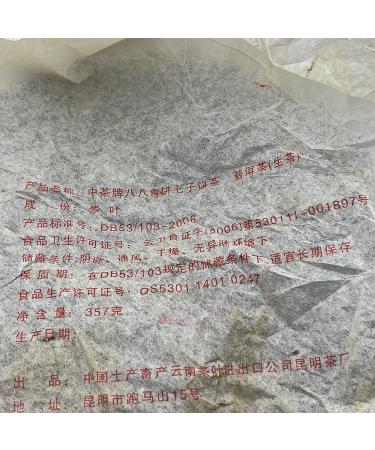 产品名称：中茶牌八八青饼七子饼茶　普洱茶(生茶)
成　份：茶叶
产品标准号：DB53/103-2006
食品卫生许可证号：云卫食证字(2006)第530111-001897号
储藏条件：阴凉、通风、干燥、无异味环境下
保质期：在DB53/103规定的储藏条件下，适宜长期保存
食品生产许可证号：QS5301 1401 0247
净含量：357克
生产日期：
出　品：中国土产畜产云南茶叶进出口公司昆明茶厂
地　址：昆明市跑马山15号